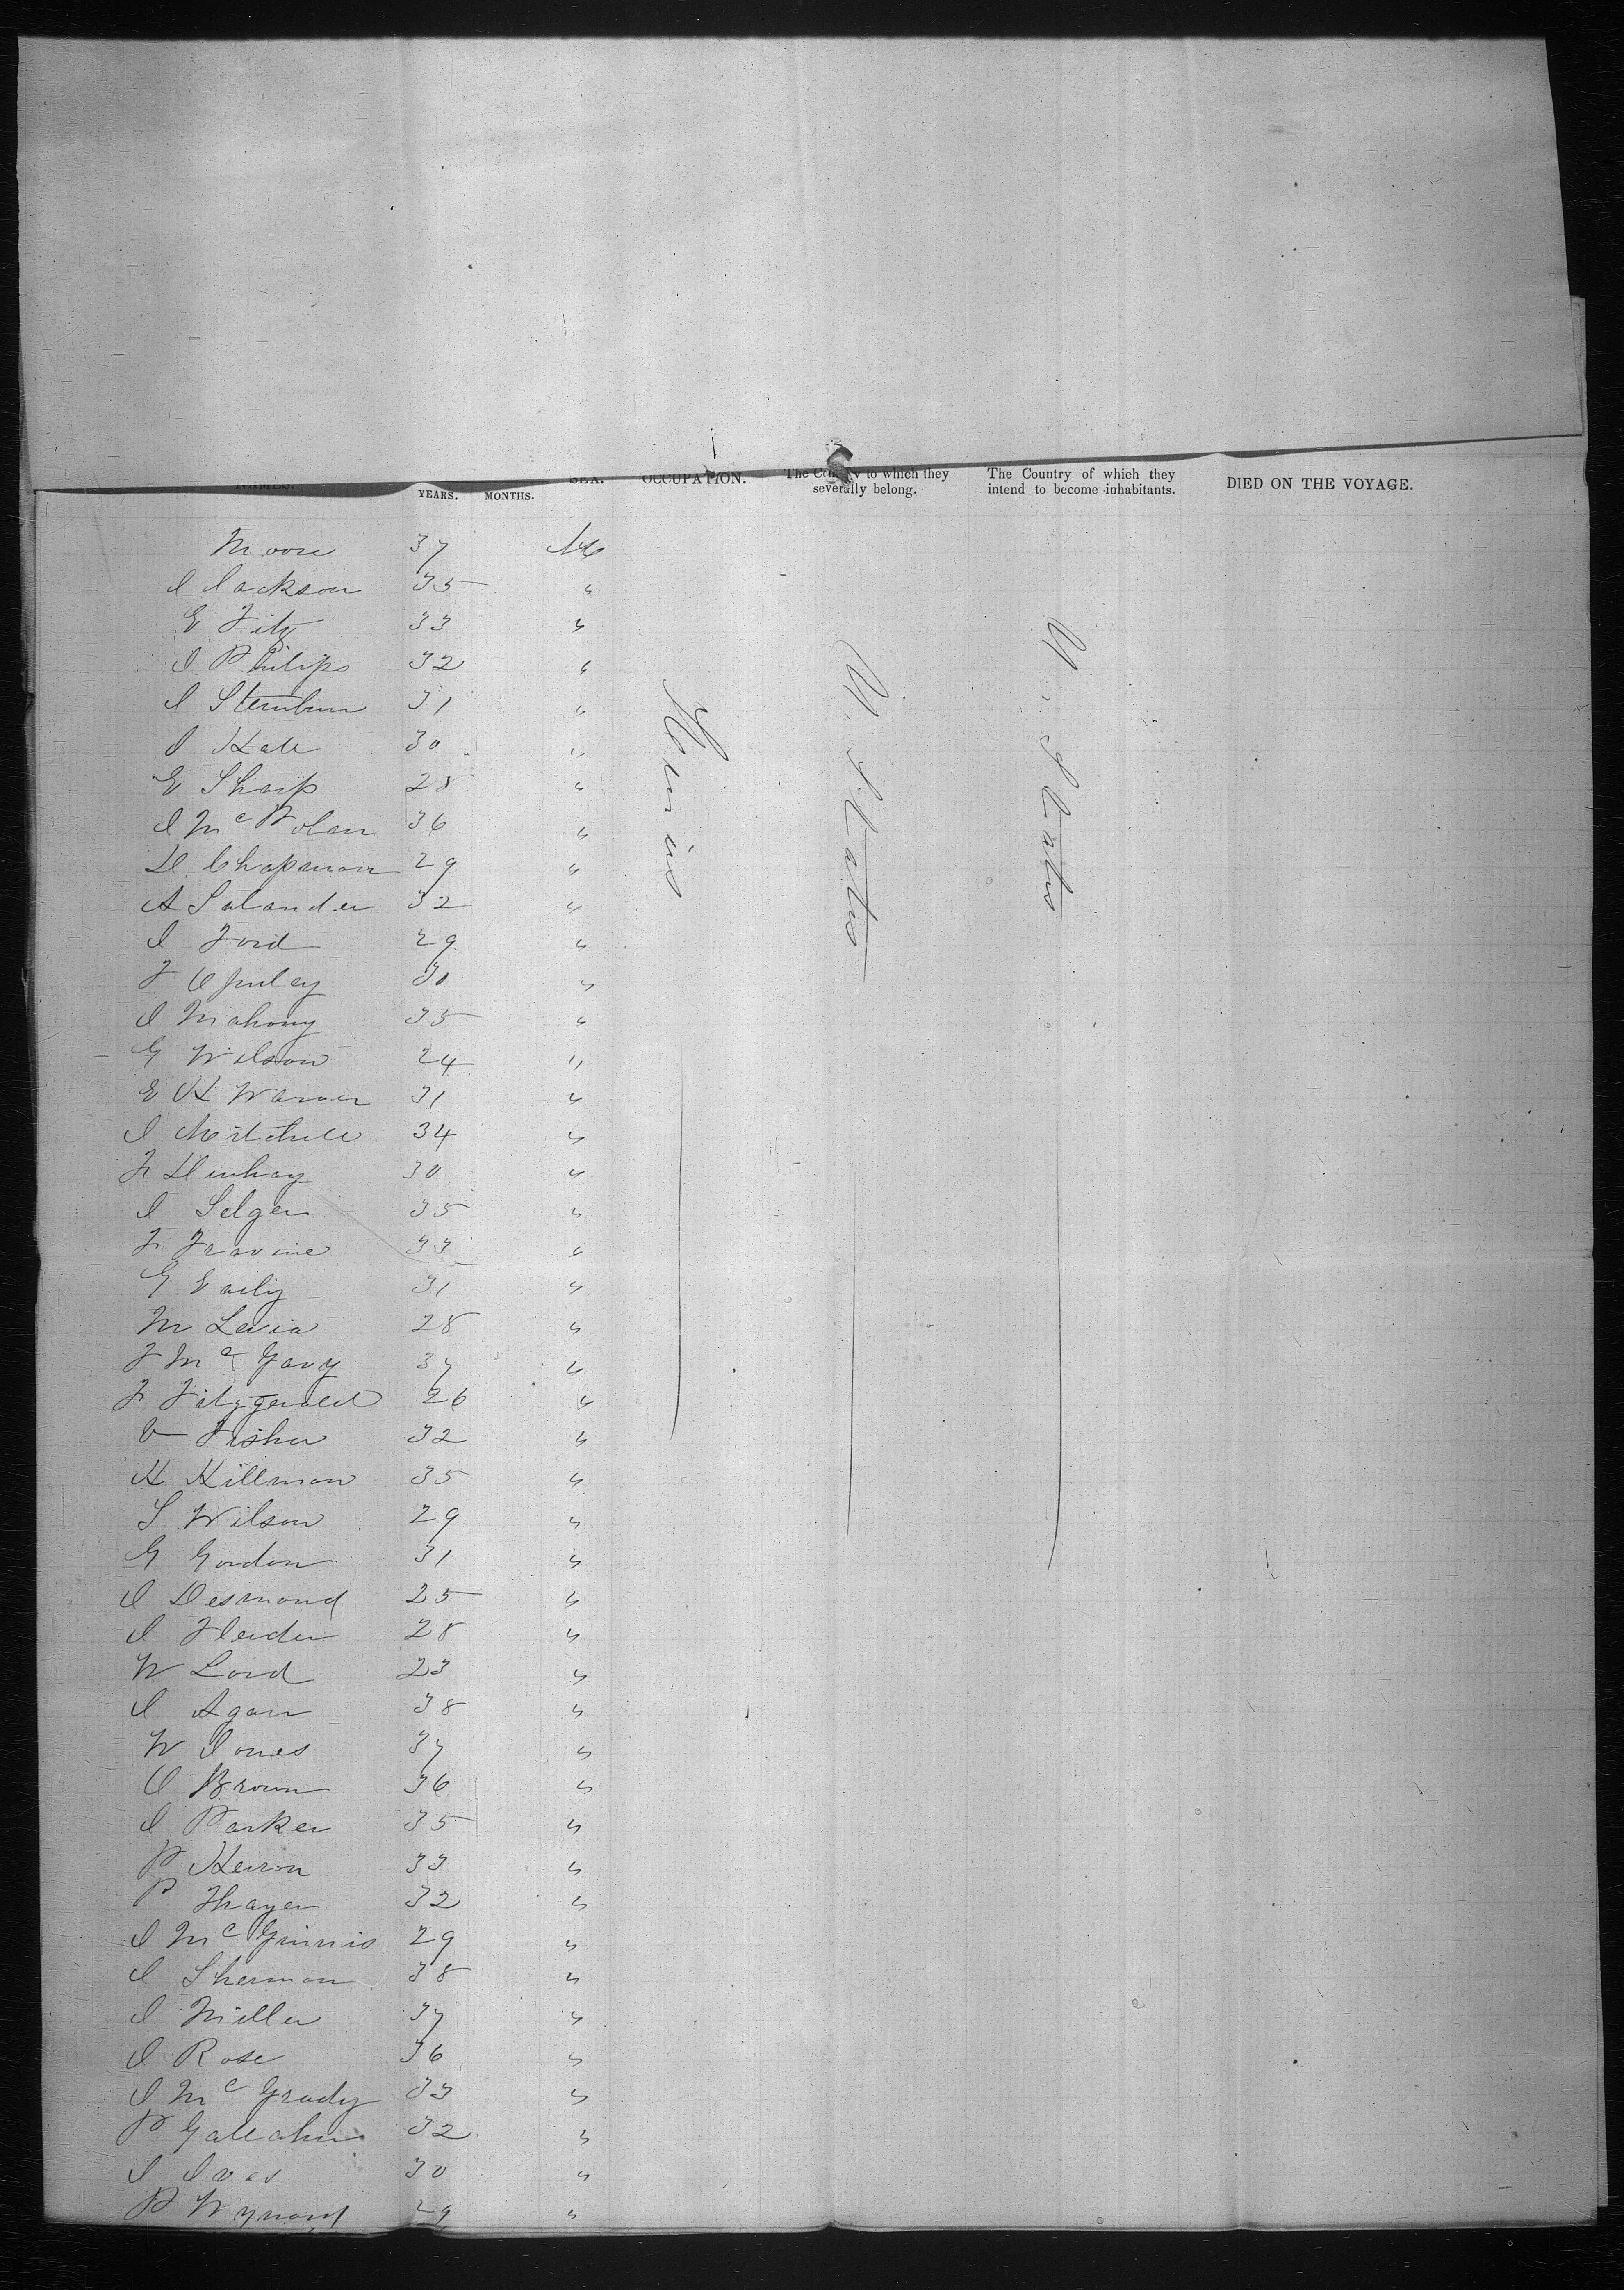 NAMES. YEARS. MONTHS. SEX. OCCUPATION. The Country to which they severally belong. The Country of which they intend to become inhabitants. DIED ON THE VOYAGE.
Moore 37 M
I Jackson 35 "
E Fitz 33 "
I Philips 32 "
I 31 "
I Hall 30 "
E Sharp 28 "
I Mc Nolan 36 "
D Chapman 29 "
A Salander 32 "
I Ford 29 "
F 30 "
I Mahony 35 "
G Wilson 24 "
E H Warner 31 "
I Mitchell 34 "
F 30 "
I Selger 35 "
F Travine 33 "
G Early 31 "
M Levia 28 "
F Mc Gavy 37 "
F Fitzgerald 26 "
V Fisher 32 "
H Hillman 35 "
S Wilson 29 "
G Gordon 31 "
I Desmond 25 "
I 28 "
W Lord 23 "
I Agan 38 "
W Jones 37 "
O Brown 36 "
I Parker 35 "
P Heron 33 "
P Thayer 32 "
I Mc Ginnis 29 "
I Sherman 38 "
I Miller 37 "
I Rose 36 "
I Mc Grady 33 "
P Gallaher 32 "
I Ives 30 "
P Wynard 29 "
U. States
U. States